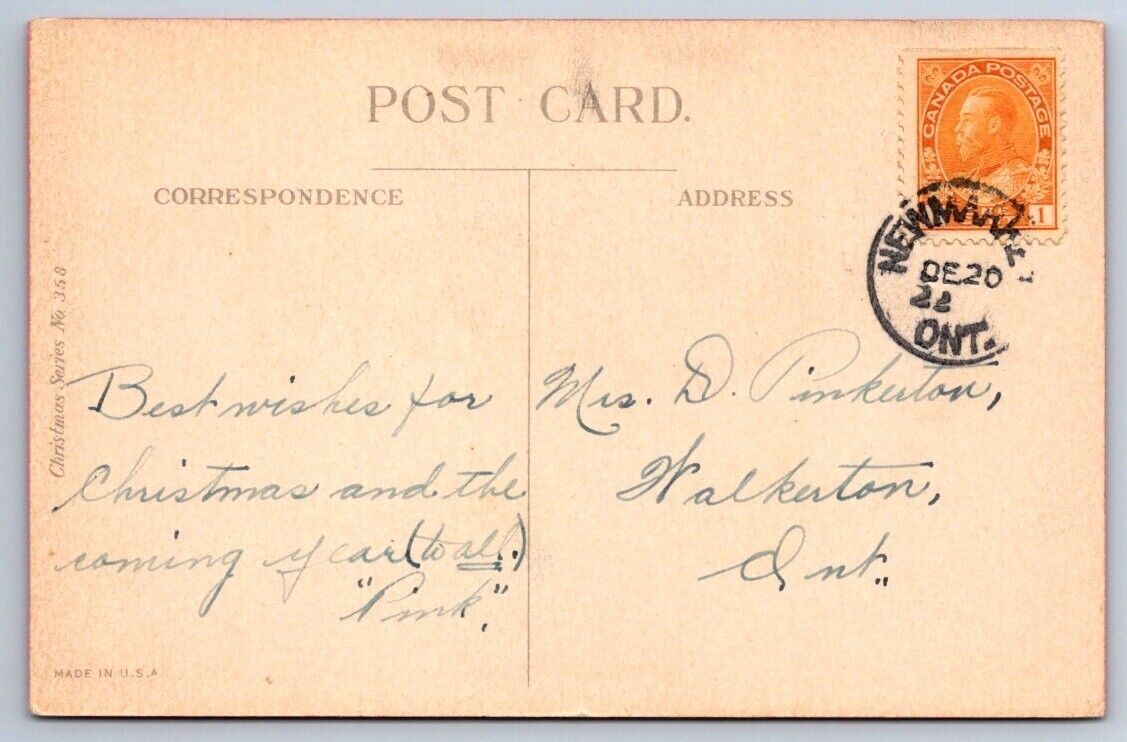 POST CARD.
CORRESPONDENCE
ADDRESS
CANADA POSTAGE
1
NEWMARKET
DE 20
22
ONT.
Christmas Series No. 358
Best wishes for
Christmas and the
coming year (to all.)
"Pink".
Mrs. D. Pinkerton,
Walkerton,
Ont.
MADE IN U.S.A